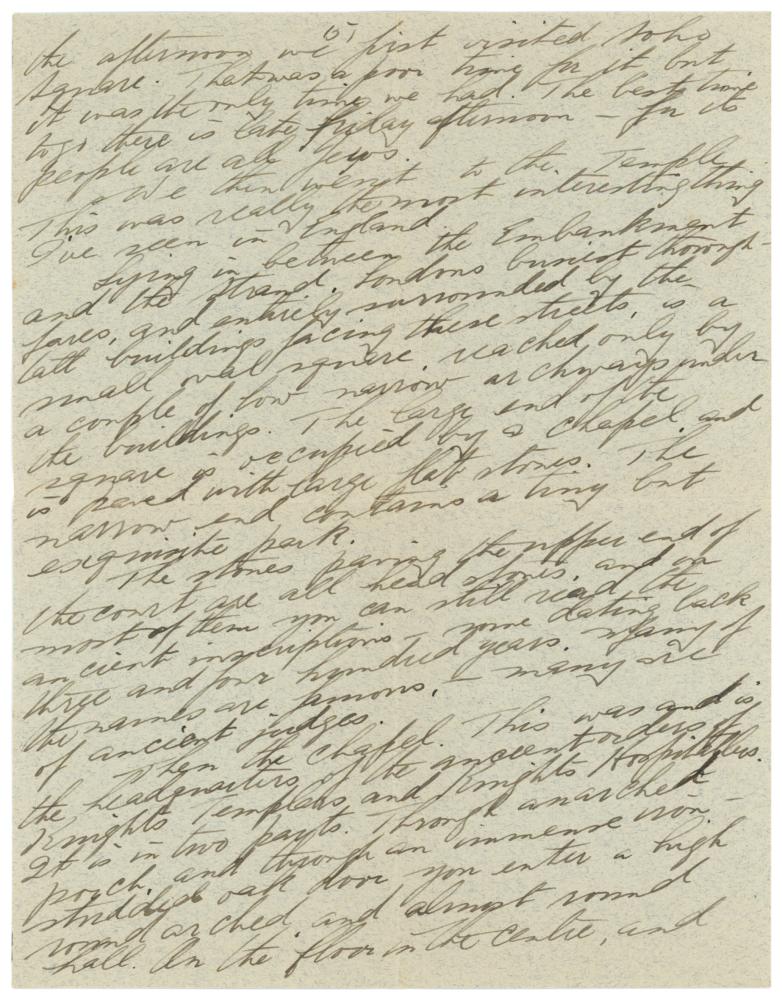 (5)
the afternoon we first visited Soho
Square. That was a poor time for it but
it was the only time we had. The best time
to go there is late Friday afternoon – for its
people are all Jews.
We then went to the Temple.
This was really the most interesting thing
I've seen in England.
Lying in between the Embankment
and the Strand, Londons busiest thorough-
fares, and entirely surrounded by the
tall buildings facing these streets, is a
small oval square reached only by
a couple of low narrow archways under
the buildings. The large end of the
square is occupied by a chapel and
is paved with large flat stones. The
narrow end contains a tiny but
exquisite park.
The stones paving the upper end of
the court are all head stones, and on
most of them you can still read the
ancient inscriptions – some dating back
three and four hundred years. Many of
the names are famous, – many are
of ancient judges.
Then the chapel. This was and is
the headquarters of the ancient orders of
Knights Templars and Knights Hospitallers.
It is in two parts. Through an arched
porch, and through an immense iron-
studded oak door you enter a high
round arched and almost round
hall. On the floor in the centre, and